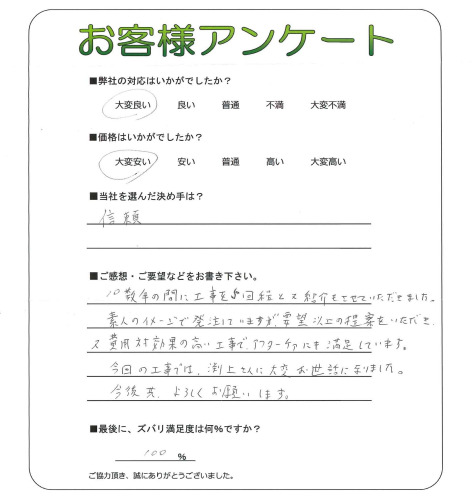 お客様アンケート
■弊社の対応はいかがでしたか？
大変良い 良い 普通 不満 大変不満
■価格はいかがでしたか？
大変安い 安い 普通 高い 大変高い
■当社を選んだ決め手は？
信頼
■ご感想・ご要望などをお書き下さい。
10数年の間に工事を5回程と又紹介もさせていただきました。
素人のイメージで発注していますが、要望以上の提案をいただき、
又費用対効果の高い工事で、アフターケアにも満足しています。
今回の工事では、渕上さんに大変お世話になりました。
今後共、よろしくお願いします。
■最後に、ズバリ満足度は何%ですか？
100 %
ご協力頂き、誠にありがとうございました。